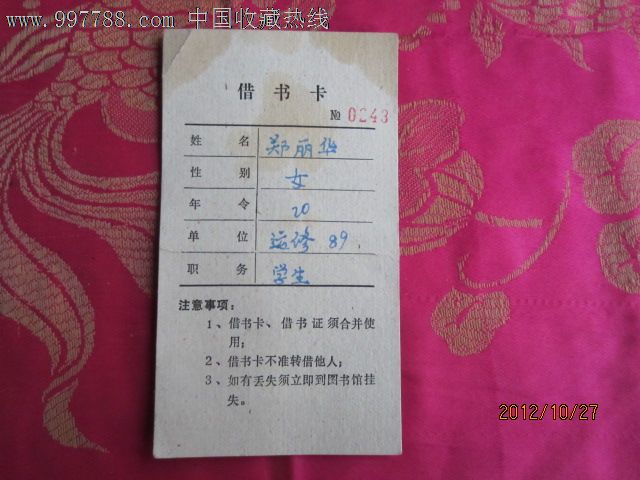 www.997788.com 中国收藏热线
借书卡
№ 0243
姓名 郑丽华
性别 女
年令 20
单位 运修 89
职务 学生
注意事项：
1、借书卡、借书证须合并使
用；
2、借书卡不准转借他人；
3、如有丢失须立即到图书馆挂
失。
2012/10/27